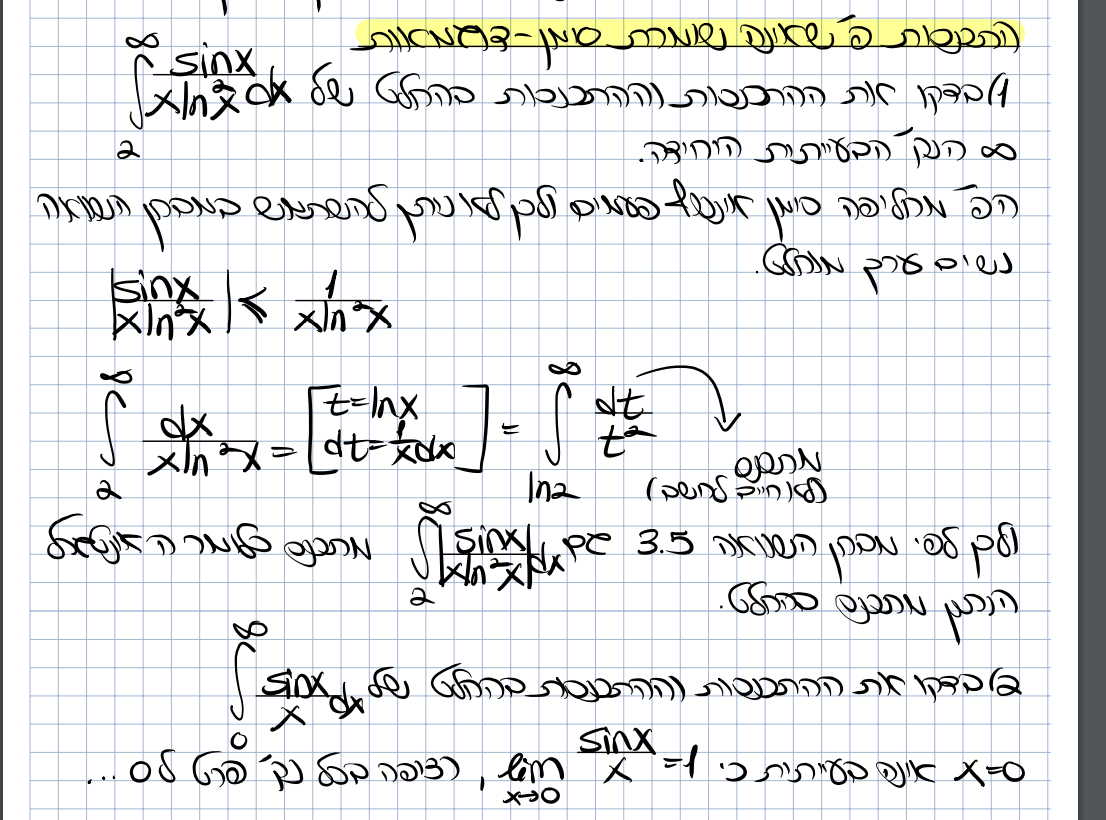 התכנסות פ' שאינה שומרת סימן-דוגמאות
1) בדקו את ההתכנסות וההתכנסות בהחלט של ∫_2^∞ sinx/(xln²x) dx
∞ הנק' הבעייתית היחידה.
הפ' מחליפה סימן אינסוף פעמים ולכן לא ניתן להשתמש במבחן השוואה
נשים ערך מוחלט.
|sinx/(xln²x)| ≤ 1/(xln²x)
∫_2^∞ dx/(xln²x) = [t=lnx dt=1/x dx] = ∫_ln2^∞ dt/t²
מתכנס
(לא חייב לחשב)
ולכן לפי מבחן השוואה 3.5 גם ∫_2^∞ |sinx/(xln²x)| dx מתכנס כלומר האינטגרל
הנתון מתכנס בהחלט.
2) בדקו את ההתכנסות וההתכנסות בהחלט של ∫_0^∞ sinx/x dx
x=0 אינה בעייתית כי lim_{x→0} sinx/x =1, רציפה בכל נק' פרט ל0...